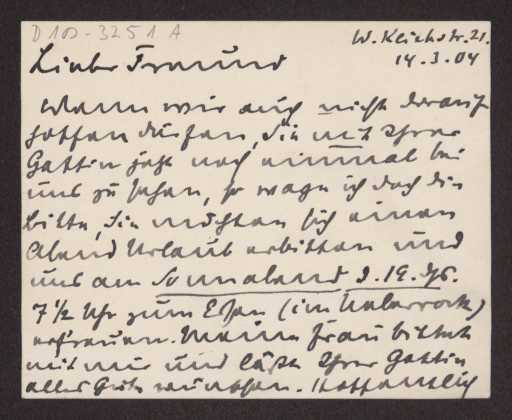 D 100-3251 A
W. Kleiststr. 21.
14.3.04
Lieber Freund
Wenn wir auch nicht darauf
hoffen dürfen, Sie mit Ihrer
Gattin jetzt noch einmal bei
uns zu sehen, so wage ich doch die
Bitte, Sie möchten sich einen
Abend Urlaub erbitten und
uns am Sonnabend d. 19. ds.
7½ Uhr zum Essen (im Ueberrock)
erfreuen. Meine Frau bittet
mit mir und läßt Ihrer Gattin
alles Gute wünschen. Hoffentlich